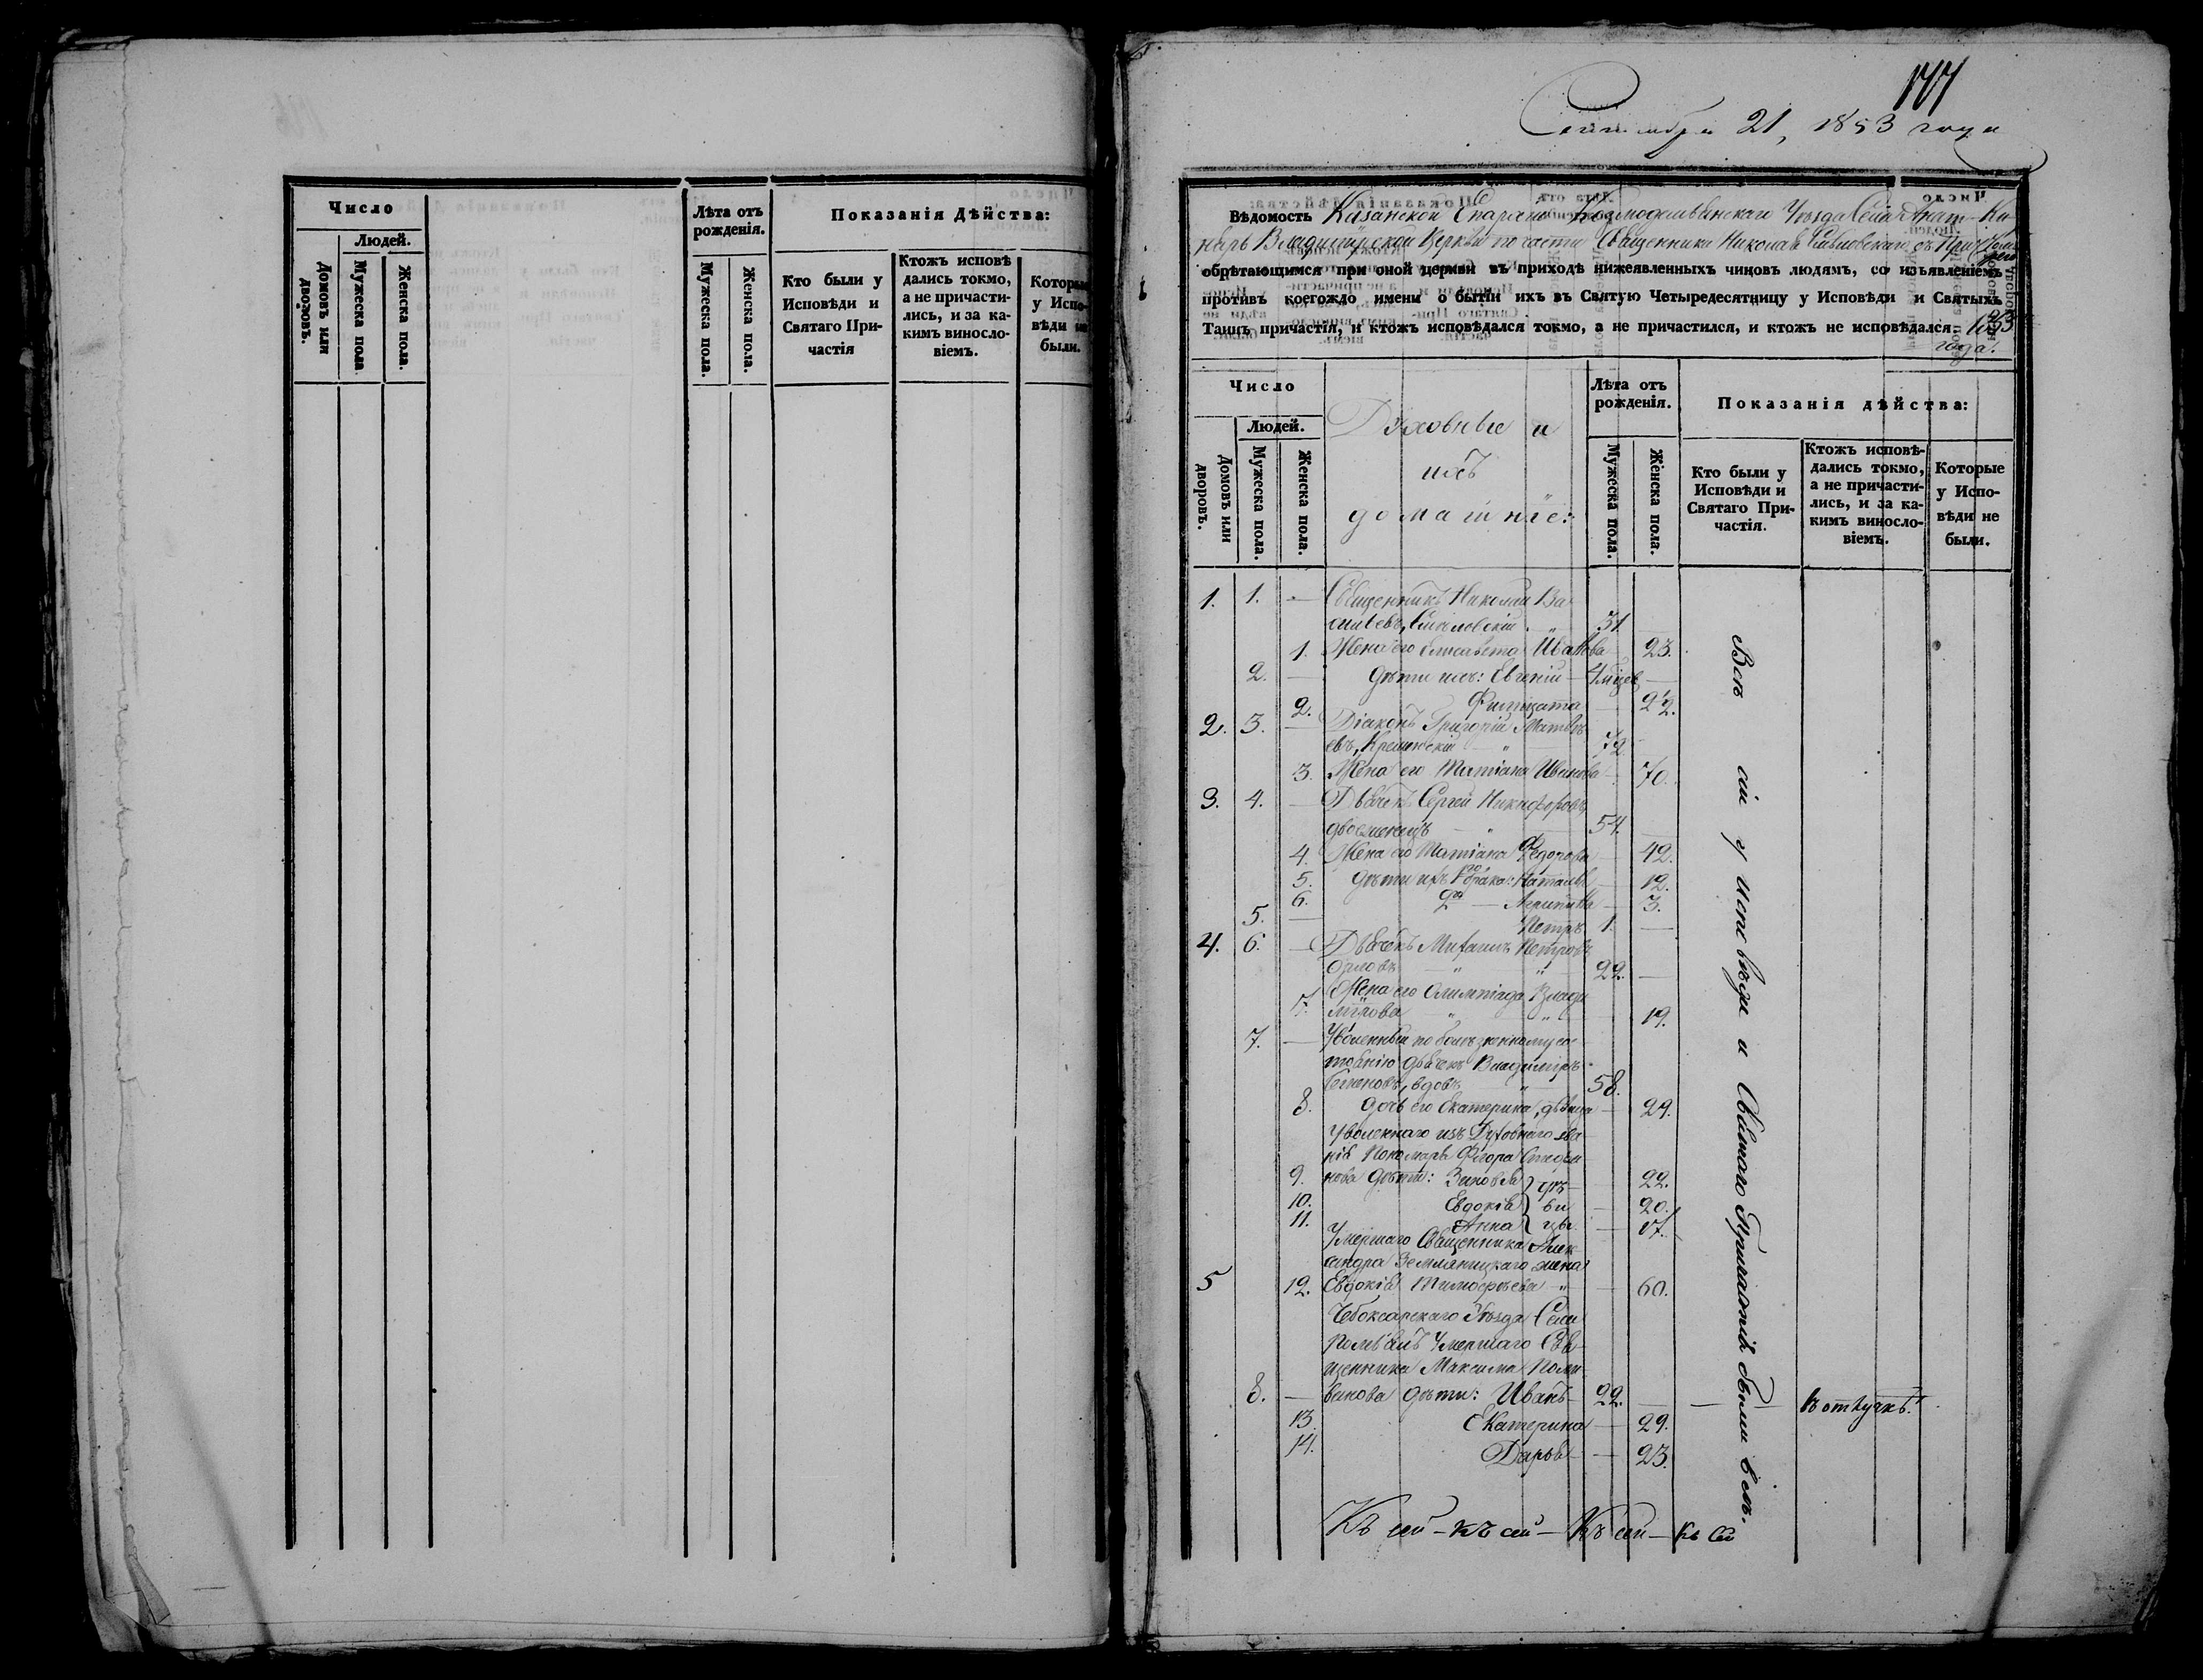 Число
Людей.
Домовъ или дворовъ.
Мужеска пола
Женска пола.
Лѣта отъ рожденія.
Мужеска пола.
Женска пола.
Показанія Дѣйства:
Кто были у
Исповѣди и
Святаго При-
частія
Ктожъ исповѣ
дались токмо,
а не причасти-
лись, и за ка-
кимъ виносло-
віемъ.
Которые
у Испо-
вѣди не
были.
Сентября 21, 1853 года
Вѣдомость Казанской Епархіи Козмодемьянскаго Уѣзда Села
Владимірской Церкви по части Священника Николая съ
обрѣтающимся при оной церкви въ приходѣ нижеявленныхъ чиновъ людямъ, со изъявленіемъ
противъ коегождо имени о бытіи ихъ въ Святую Четыредесятницу у Исповѣди и Святыхъ
Таинъ причастія, и ктожъ исповѣдался токмо, а не причастился, и ктожъ не исповѣдался. 1853
года.
Число
Людей.
Домовъ или дворовъ.
Мужеска пола.
Женска пола.
Духовные и
ихъ
домашніе:
Лѣта отъ
рожденія.
Мужеска пола.
Женска пола.
Показанія дѣйства:
Кто были у
Исповѣди и
Святаго При-
частія.
Ктожъ исповѣ-
дались токмо,
а не причасти-
лись, и за ка-
кимъ виносло-
віемъ.
Которые
у Испо-
вѣди не
были.
1. 1. — Священникъ Николай Ва
сильевъ, 31
1. Жена его Елисавета Иванова 23.
2. — Дѣти ихъ: Евгеній — 4 мѣсяц.
2. Фелицата — 2½.
2. 3. — Діаконъ Григорій Матвѣ
евъ, " 72
3. Жена его Татіана Иванова — 70.
3. 4. — Дьячекъ Сергей Никифоровъ,
двоеженецъ — " 54.
4. Жена его Татіана Федорова — 42.
5. Дѣти ихъ 1го брака: Наталья 12.
6. 2го — Агрипина — 3.
5. — Петръ 1. —
4. 6. — Дьячекъ Михаилъ Петровъ
Орловъ — " " 22. —
7. Жена его Олимпіада Влади
мірова " " 19.
7. — Уволенный по болѣзненному со
стоянію дьячекъ Владиміръ
Семеновъ, вдовъ " 58.
8. Дочь его Екатерина, дѣвица — 29.
Уволеннаго изъ Духовнаго зва
нія Пономаря Флора Стефа
9. нова дѣти: Зиновья } дѣ — 22.
10. Евдокія } ви — 20.
11. Анна } цы. — 17.
Умершаго Священника Алек
сандра Земляницкаго жена
5 12. Евдокія Тимофѣева " — 60.
Чебоксарскаго Уѣзда Села
Умершаго Свя
щенника Максима Поли
8. — нова дѣти: Иванъ 22. — — въ отлучкѣ.
13. Екатерина — 29.
14. Дарья — 23.
Всѣ сіи у исповѣди и Святаго Причастія были въ семъ.
Къ сей — къ сей — Къ сей — къ сей